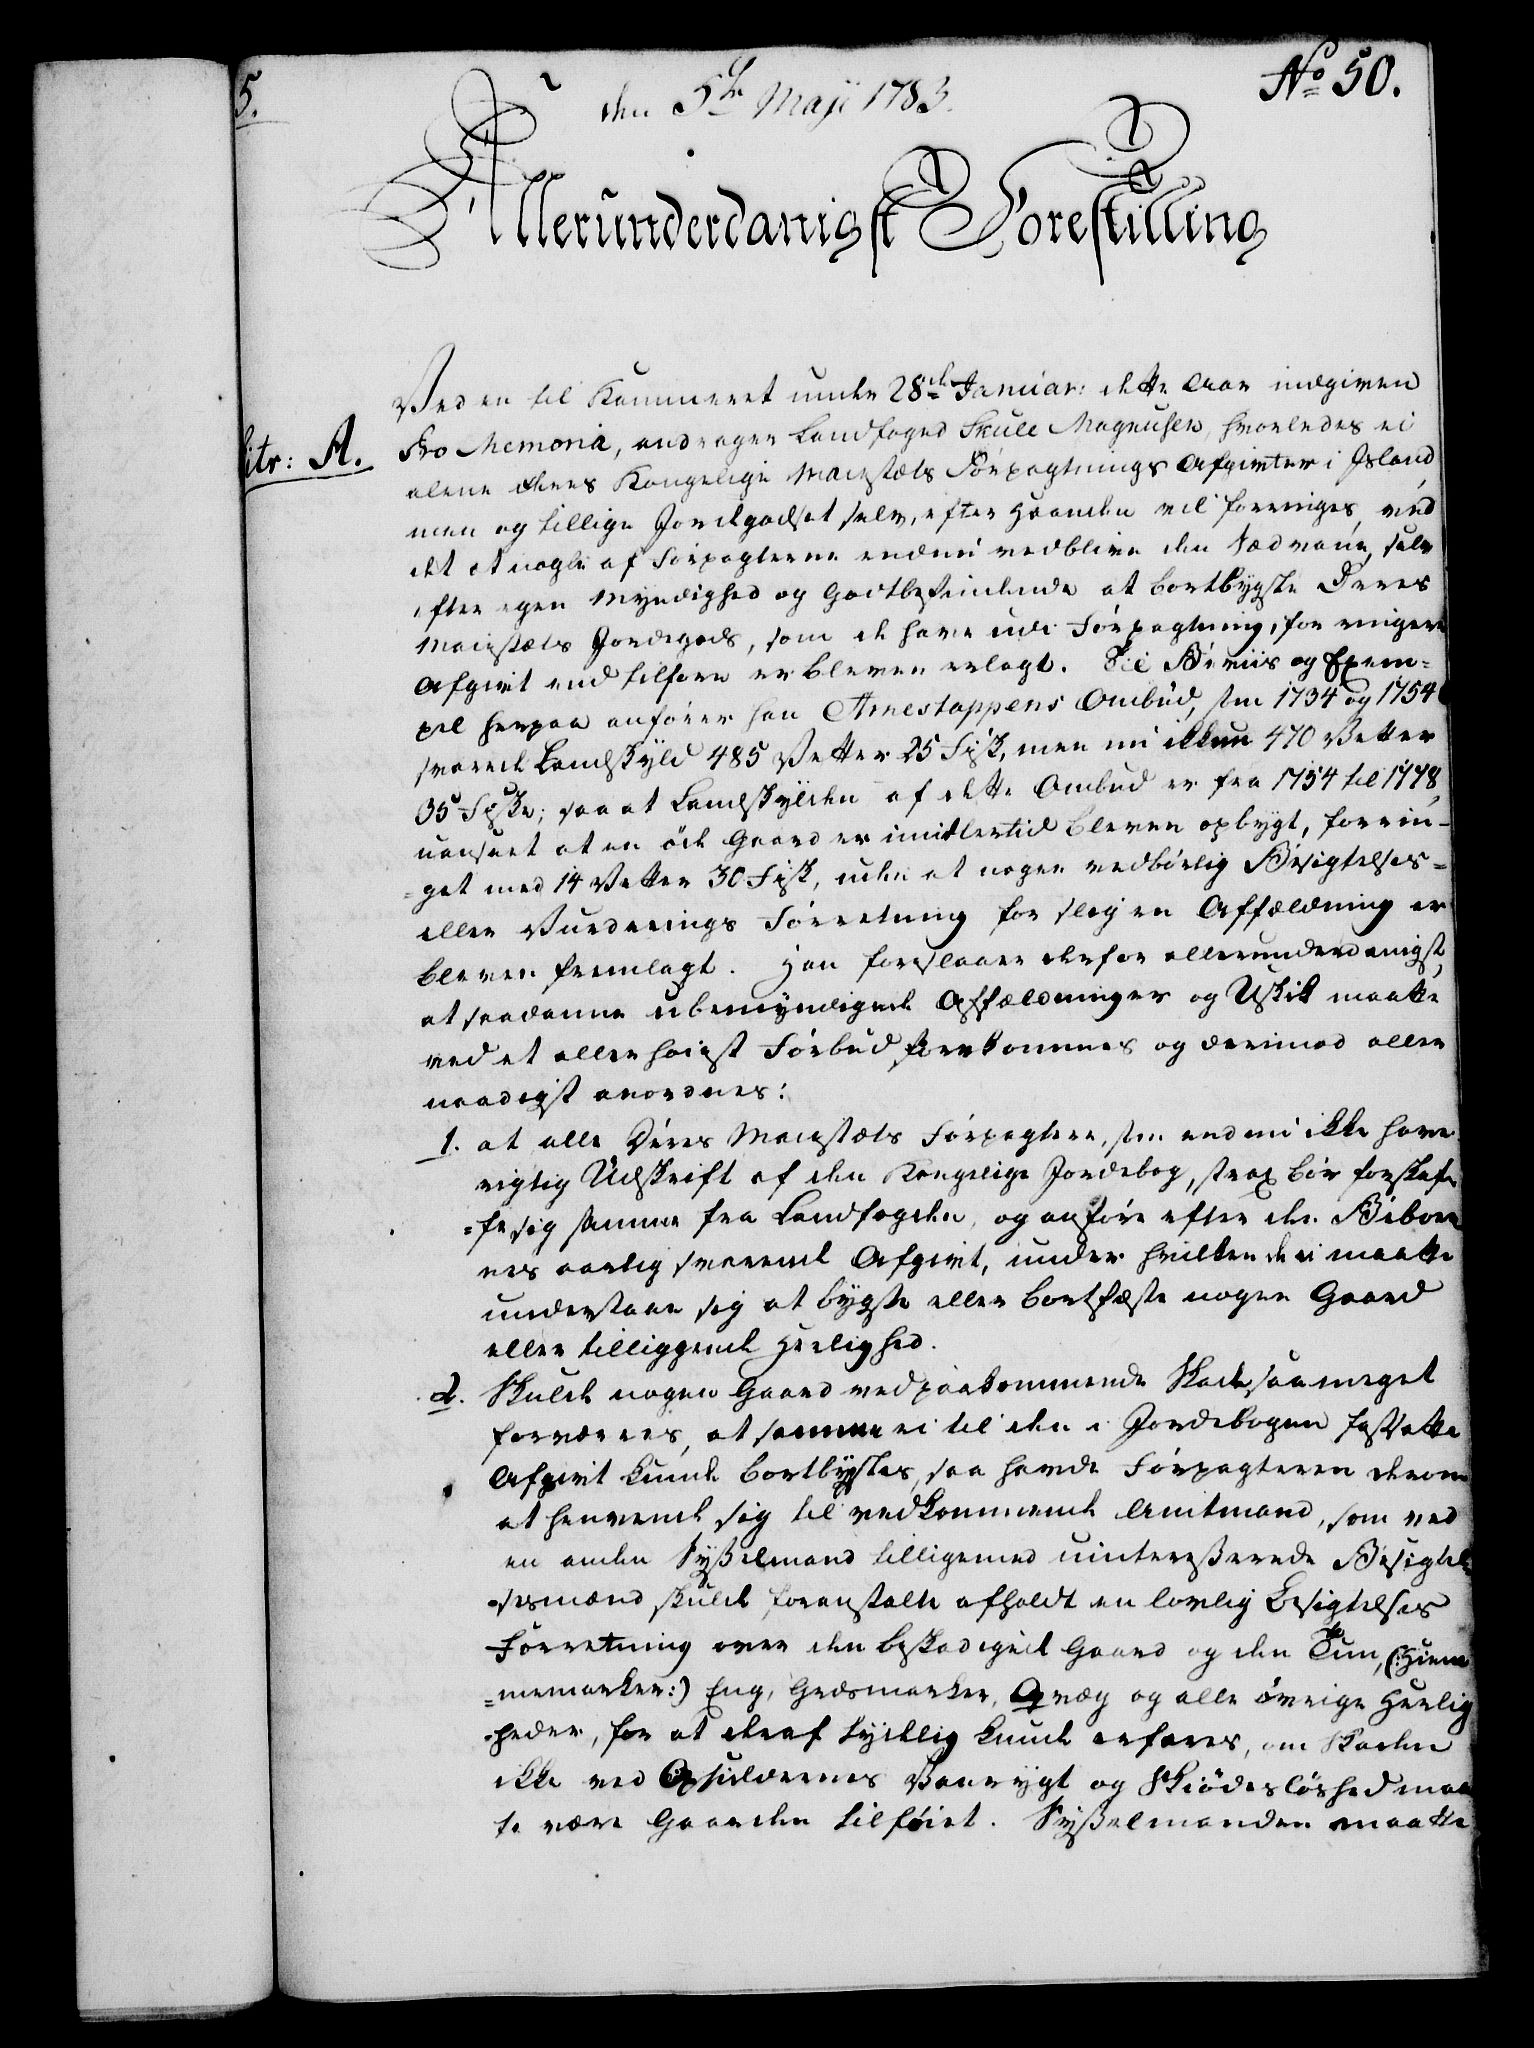 5.
No 50.
den 5te Maji 1783.
Allerunderdanigst Forestilling
Ved en til Kammeret under 28de Januar: dette Aar indgiven
Litr: A.
Pro Memoria, andrager Landfoged Skule Magnusen, hvorledes ei
alene Deres Kongelige Majestæts Forpagtnings Afgivter i Island,
men og tillige Jordegodset selv, efter Haanden vil forringes, ved
det at nogle af Forpagterne endnu vedblive den Sædvane, selv
efter egen Myndighed og Godtbefindende at bortbygsle Deres
Majestæts Jordegods, som de have udi Forpagtning, for ringere
Afgivt end tilforn er bleven erlagt. Til Beviis og Exem-
pel herpaa anfører han Arnestappens Ombud, som 1734 og 1754
svarede Landskyld 485 Vetter 25 Fisk, men nu ikkun 470 Vetter
35 Fiske; saa at Landskylden af dette Ombud er fra 1754 til 1778,
uanseet at en öde Gaard er imidlertid bleven opbygt, forrin-
=get med 14 Vetter 30 Fisk, uden at nogen vedbörlig Besigtelses=
eller Vurderings Forretning for slig en Affældning er
bleven fremlagt. Han foreslaaer derfor allerunderdanigst,
at saadanne ubemyndigede Affældninger og Uskik maatte
ved et allerhöiest Forbud forekommes og derimod aller
naadigst anordnes:
1. at alle Deres Majestæts Forpagtere, som endnu ikke have
rigtig Udskrift af den Kongelige Jordebog, strax bör forskaf-
=fe sig samme fra Landfogden, og anføre efter den Beboer
nes aarlig svarende Afgivt, under hvilken de ei maatte
understaae sig at bygsle eller bortfæste nogen Gaard
eller tilliggende Herlighed.
2. Skulde nogen Gaard ved paakommende Skade saa meget
forværres, at samme ei til den i Jordebogen fastsatte
Afgivt kunde bortbygsles, saa havde Forpagteren derom
at henvende sig til vedkommende Amtmand, som ved
en anden Sysselmand tilligemed uinteresserede Besigtel-
=sesmænd skulde foranstalte afholdt en lovlig Besigtelses
Forretning over den beskadigede Gaard og den Tun, (: Hiem
=memarker:) Eng, Græsmarker, Qvæg og alle övrige Herlig
=heder, for at deraf tydelig kunde erfares, om Skaden
ikke ved Opsiddernes Vanrygt og Skiødeslöshed maa
te være Gaarden tilföiet. Sysselmanden maatte